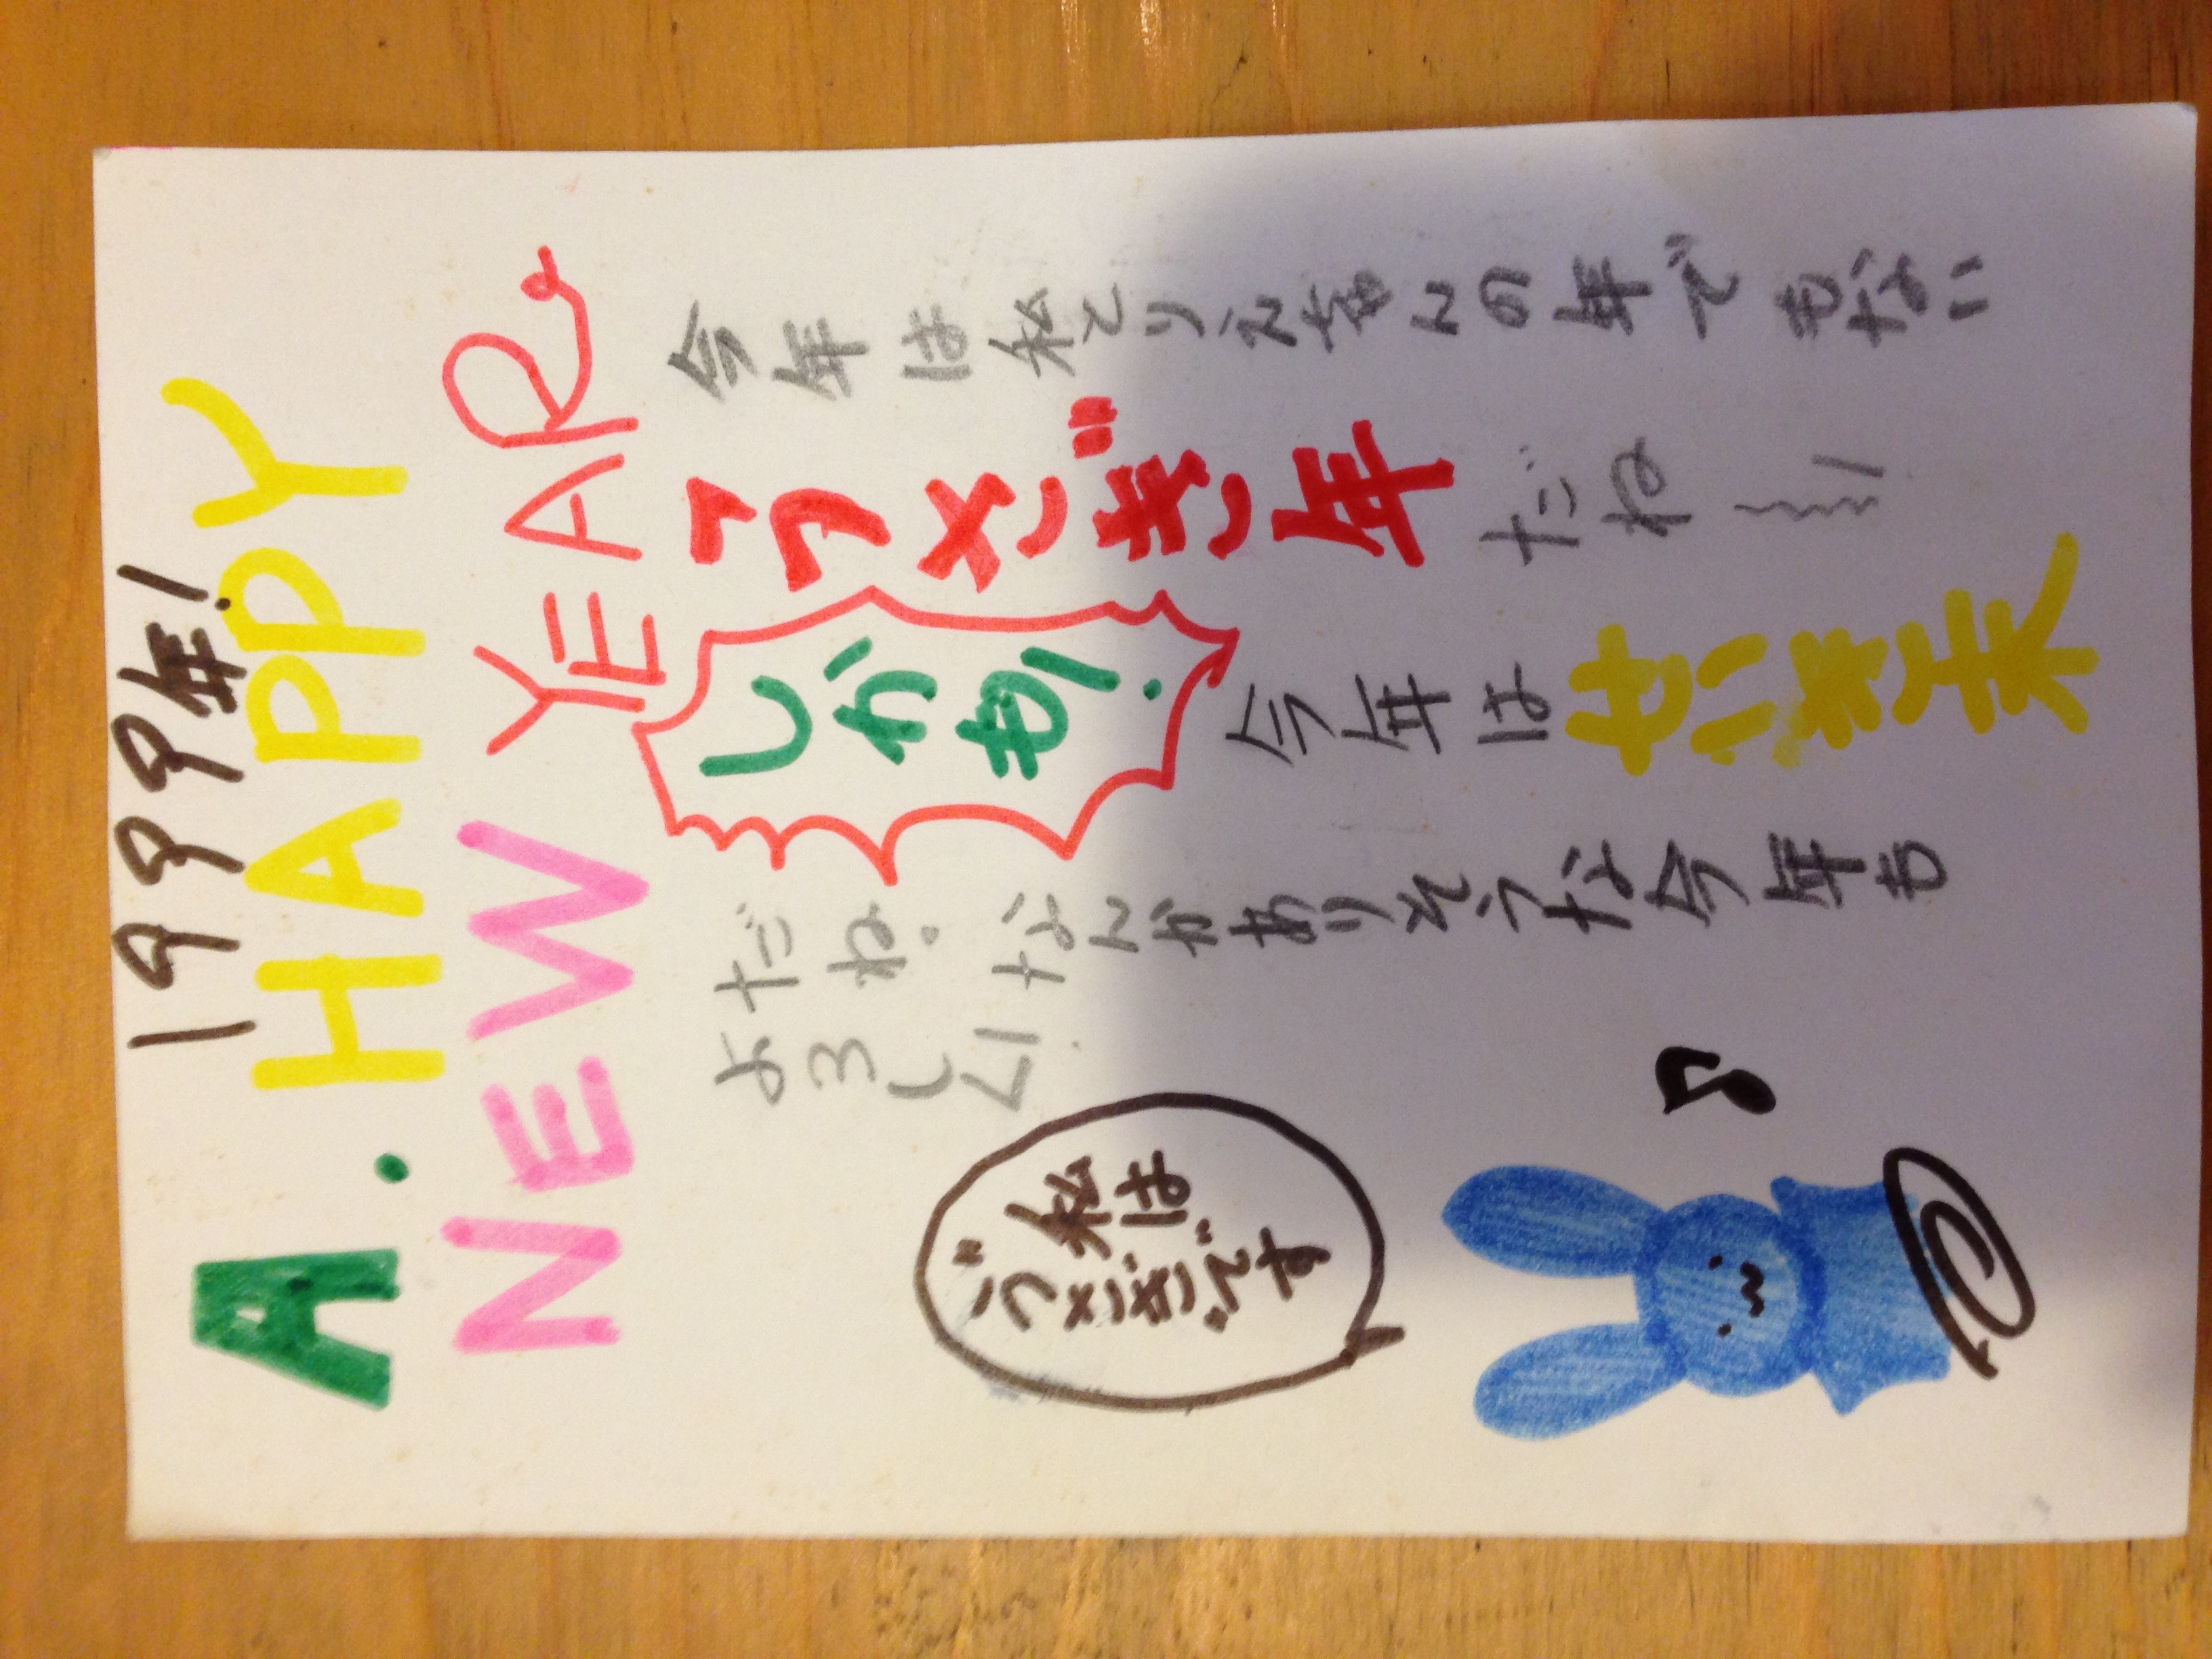 1999年!
A. HAPPY
NEW YEAR
今年は私とりえちゃんの年でもない
うさぎ年だね〜!
しかも! 今年はせいき末
だね。なんかありそうな今年も
よろしく!
私は
うさぎです